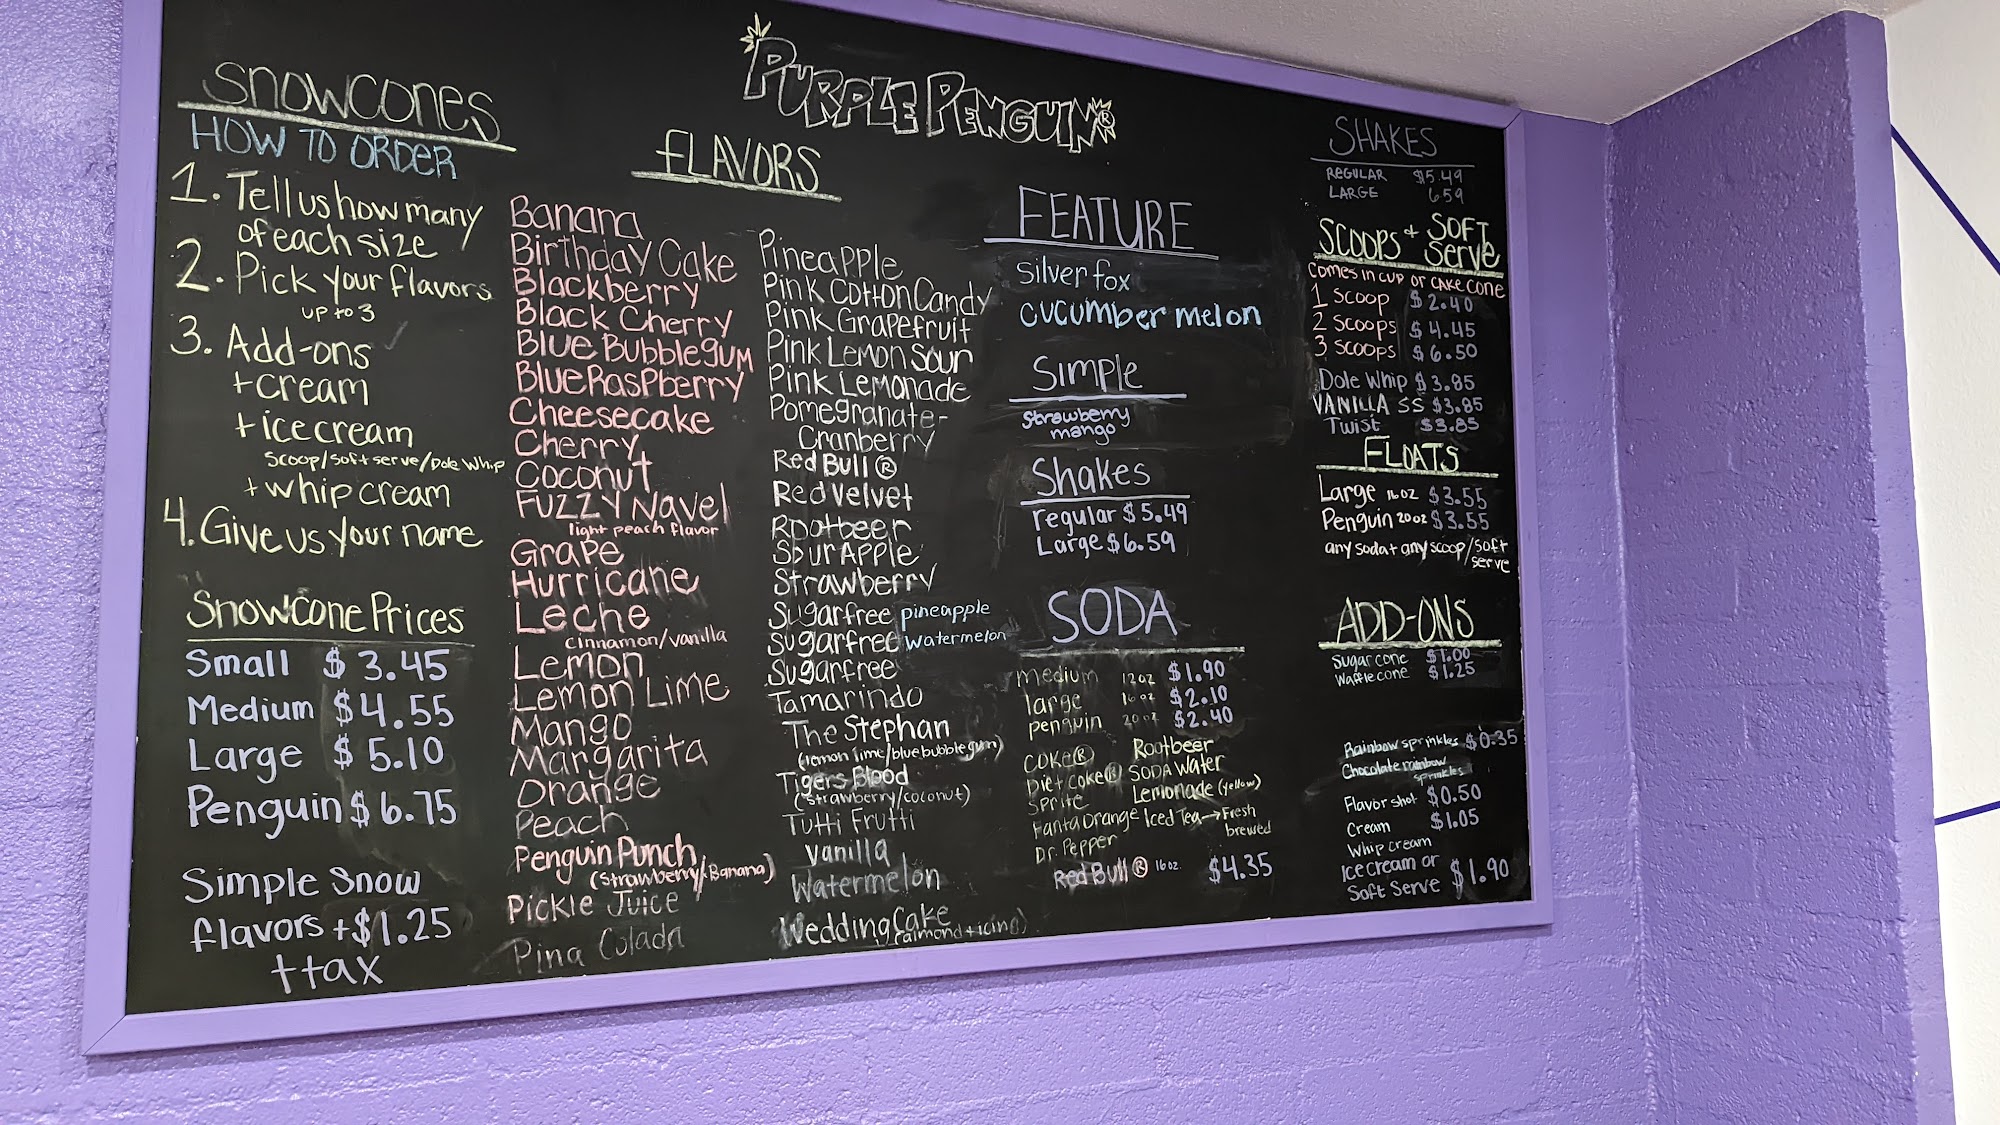 PURPLE PENGUIN®
SNOWCONES
HOW TO ORDER
1. Tell us how many
of each size
2. Pick your flavors
up to 3
3. Add-ons
+cream
+icecream
scoop/soft serve/Dole Whip
+whip cream
4. Give us your name
Snowcone Prices
Small $3.45
Medium $4.55
Large $5.10
Penguin $6.75
Simple Snow
flavors +$1.25
+tax
FLAVORS
Banana
Birthday Cake
Blackberry
Black Cherry
Blue Bubblegum
Blue Raspberry
Cheesecake
Cherry
Coconut
Fuzzy Navel
light peach flavor
Grape
Hurricane
Leche
cinnamon/vanilla
Lemon
Lemon Lime
Mango
Margarita
Orange
Peach
Penguin Punch
(Strawberry/Banana)
Pickle Juice
Pina Colada
Pineapple
Pink Cotton Candy
Pink Grapefruit
Pink Lemon Sour
Pink Lemonade
Pomegranate-
Cranberry
Red Bull ®
Red Velvet
Rootbeer
Sour Apple
Strawberry
Sugarfree pineapple
Sugarfree watermelon
Sugarfree
Tamarindo
The Stephan
(lemon lime/blue bubblegum)
Tigers Blood
(strawberry/coconut)
Tutti Frutti
Vanilla
Watermelon
Wedding Cake
(almond+icing)
FEATURE
Silver fox
cucumber melon
Simple
strawberry
mango
Shakes
regular $5.49
Large $6.59
SODA
medium 12oz $1.90
large 16oz $2.10
penguin 20oz $2.40
Coke® Rootbeer
Diet Coke® SODA Water
Sprite Lemonade (yellow)
Fanta Orange Iced Tea→Fresh
brewed
Dr. Pepper
Red Bull® 16oz. $4.35
SHAKES
REGULAR $5.49
LARGE 659
SCOOPS + SOFT
Serve
Comes in cup or cake cone
1 Scoop $2.40
2 Scoops $4.45
3 Scoops $6.50
Dole Whip $3.85
VANILLA SS $3.85
Twist $3.85
FLOATS
Large 16oz $3.55
Penguin 20oz $3.55
any soda + any scoop/soft
serve
ADD-ONS
Sugar cone $1.00
Waffle cone $1.25
Rainbow sprinkles $0.35
Chocolate rainbow
sprinkles
Flavor shot $0.50
Cream $1.05
Whip cream
Ice cream or
Soft Serve $1.90